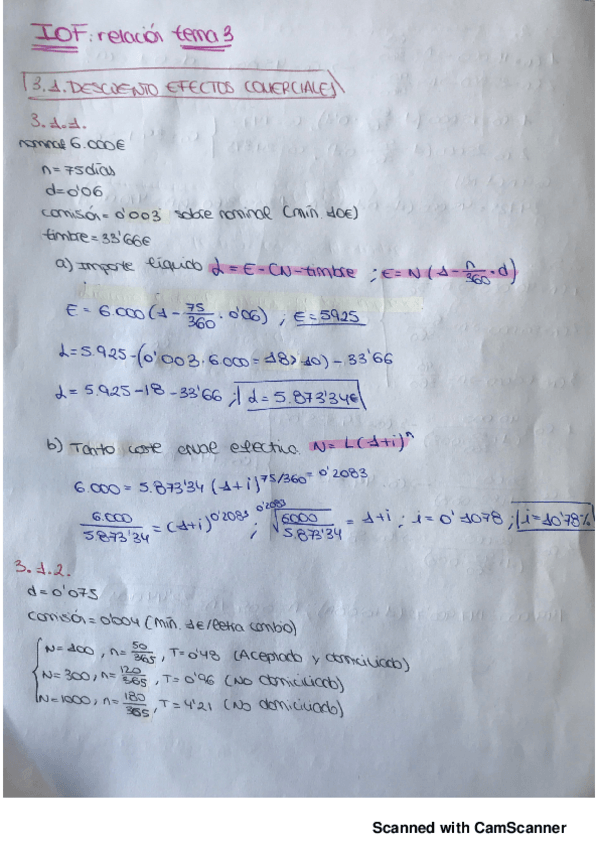 IOF: relación tema 3
3.1. DESCUENTO EFECTOS COMERCIALES
3.1.1.
nominal 6.000€
n = 75 días
d = 0'06
comisión = 0'003 sobre nominal (mín 10€)
timbre = 33'66€
a) Importe líquido L = E - CN - timbre ; E = N (1 - n/360 · d)
E = 6.000 (1 - 75/360 · 0'06) ; E = 5925
L = 5.925 - (0'003 · 6.000 = 18 > 10) - 33'66
L = 5.925 - 18 - 33'66 ; L = 5.873'34€
b) Tanto coste anual efectivo N = L (1+i)^n
6.000 = 5.873'34 (1+i)^75/360 = 0'2083
6.000/5.873'34 = (1+i)^0'2083 ; 0'2083√6000/5.873'34 = 1+i ; i = 0'1078 ; i = 10'78%
3.1.2.
d = 0'075
comisión = 0'004 (Mín. 1€/letra cambio)
N = 100, n = 50/365, T = 0'48 (Aceptado y domiciliado)
N = 300, n = 120/365, T = 0'96 (No domiciliado)
N = 1000, n = 180/365, T = 4'21 (No domiciliado)
Scanned with CamScanner